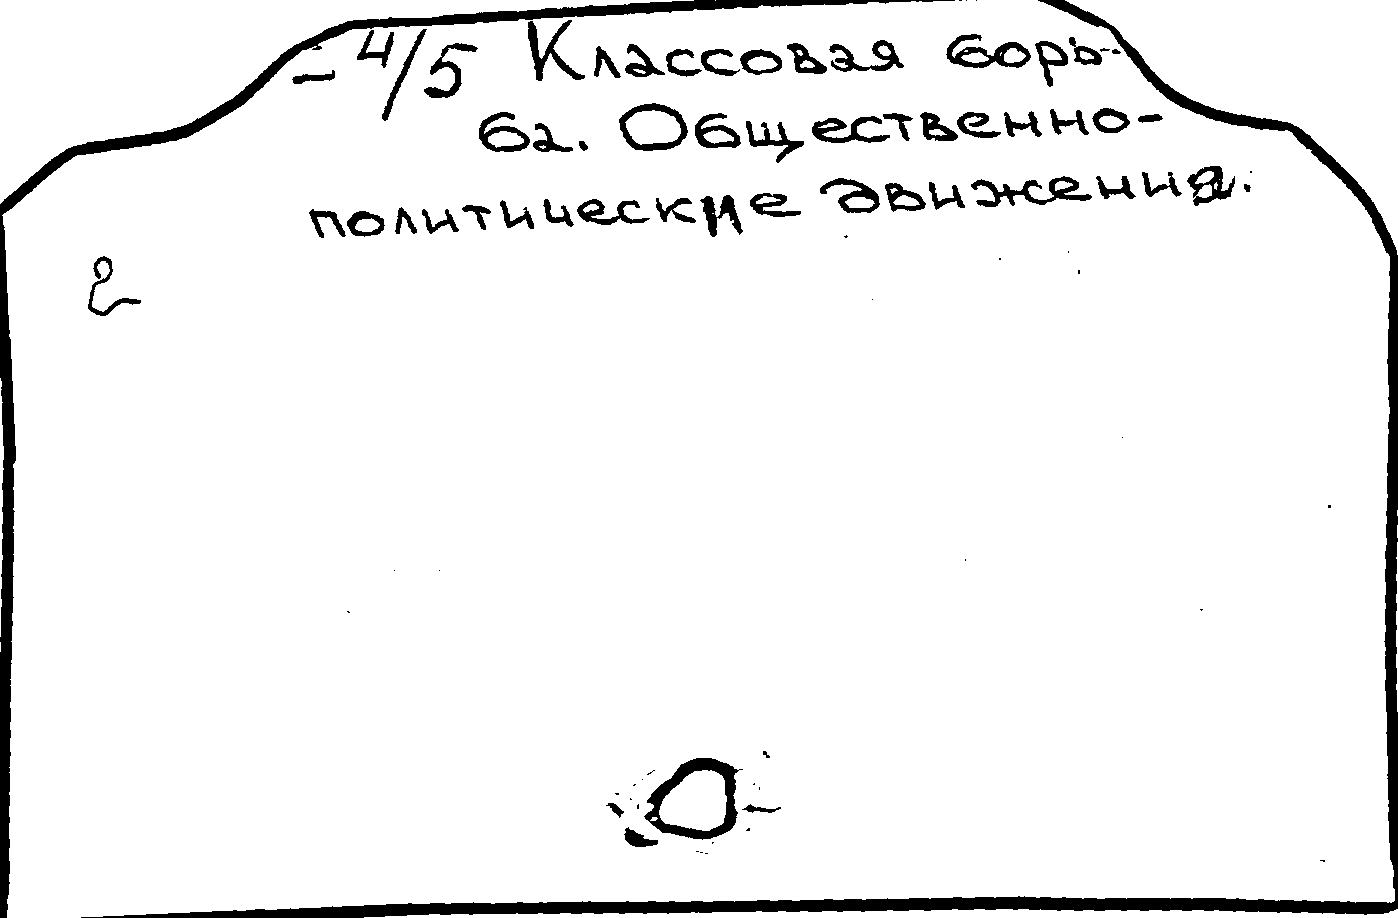 -4/5 Классовая борь-
ба. Общественно-
политические движения.
2